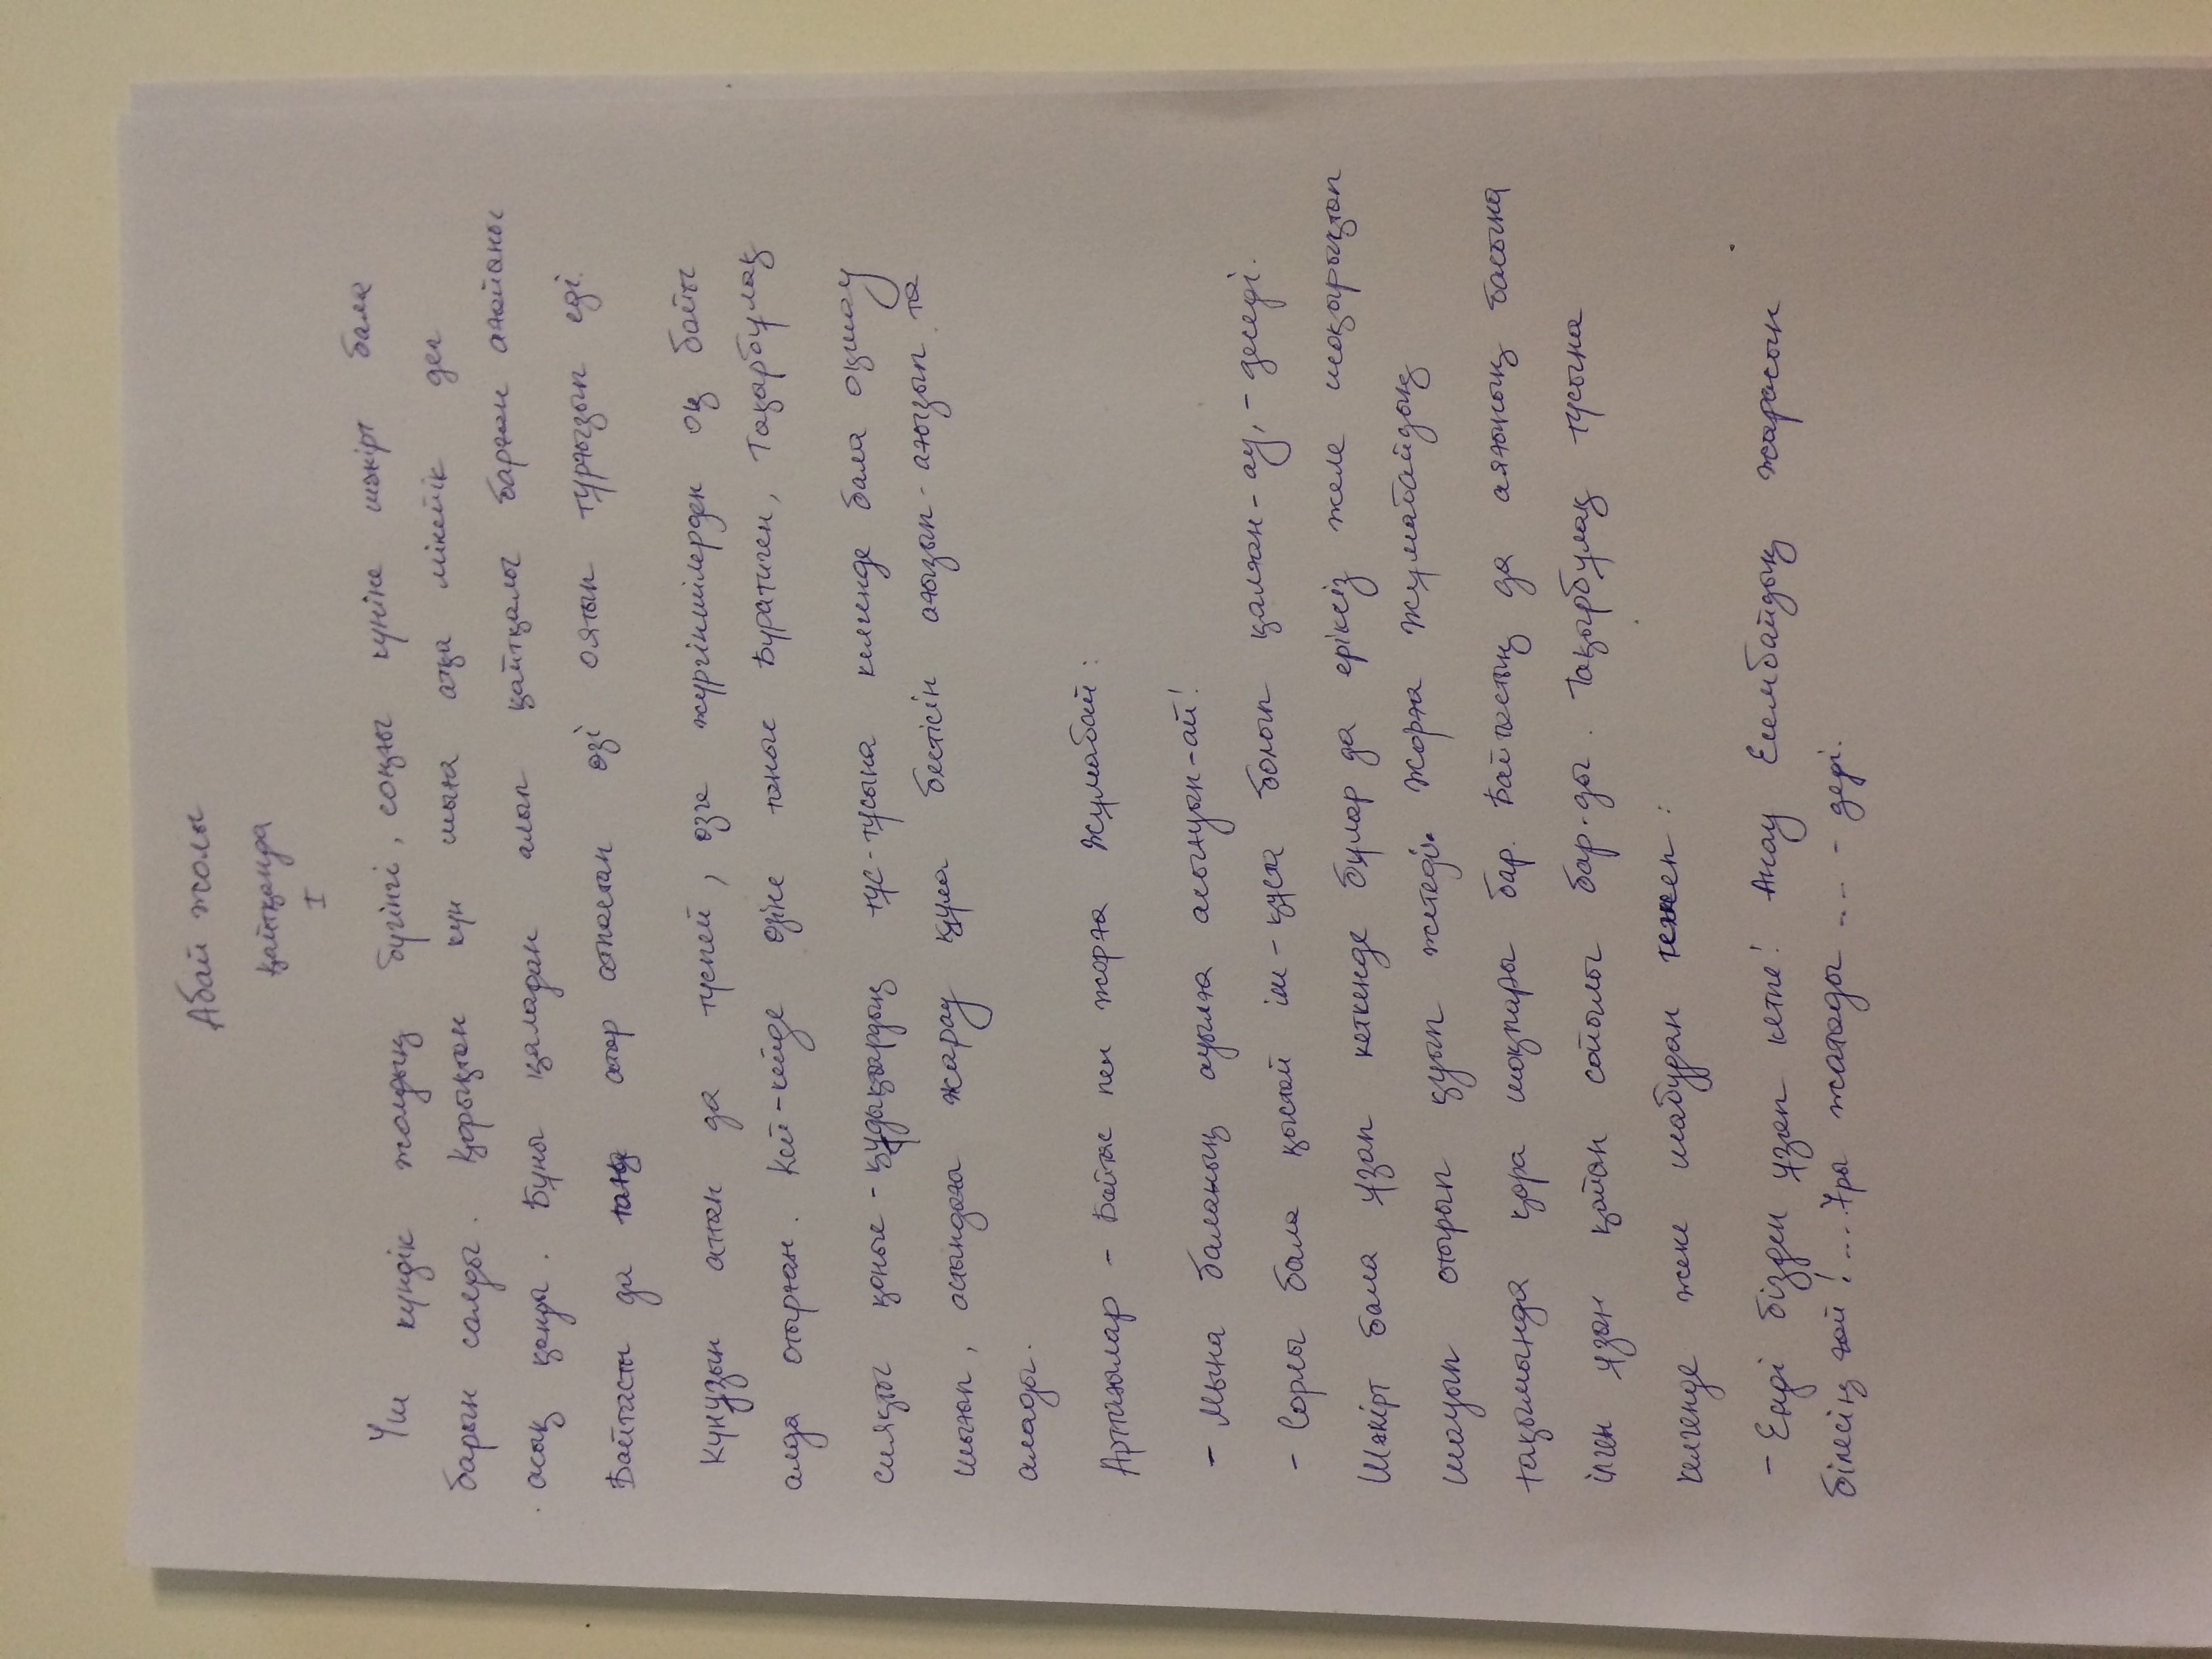 Абай жолы
Қайтқанда
I
Үш күндік жолдың бүгінгі, соңғы күніне шәкірт бала
барын салды. Қорықтан күн шыға атқа мінейік деп
асық қанды. Бұны қаладан алып қайтқалы барған ағайыны
Байтасты да таң атар атпастан өзі оятып тұрғызып еді.
Күнұзын аттан да түспей, өзге жүргіншілерден оқ бойы
алда отырған. Кей-кейде өзіне таныс Бұратиген, Тақарбұлақ
сияқты қоныс-құдықтардың тұс-тұсына келгенде бала оқшау
шығып, астындағы жарау құла бестісін ағызып-ағызып та
алады.
Арттағылар - Байтас пен жорға Жұмабай:
- Мына баланың ауылға асығуын-ай!
- Сорлы бала қыстай іш-құста болып қалған-ау, - деседі.
Шәкірт бала ұзап кеткенде бұлар да еріксіз желе шоқырықтап
шауып отырып қуып жетеді. Жорға Жұмабайдың
тақымында қара шоқпары бар. Байтастың да аяғының басына
ілген ұзын қайың сойылы бар-ды. Тақырбұлақ тұсына
келгенде жеке шабудан тежеп:
- Енді бізден ұзап кетпе! Анау Есембайдың жарасын
білесің ғой!... Ұры жатады ... - деді.